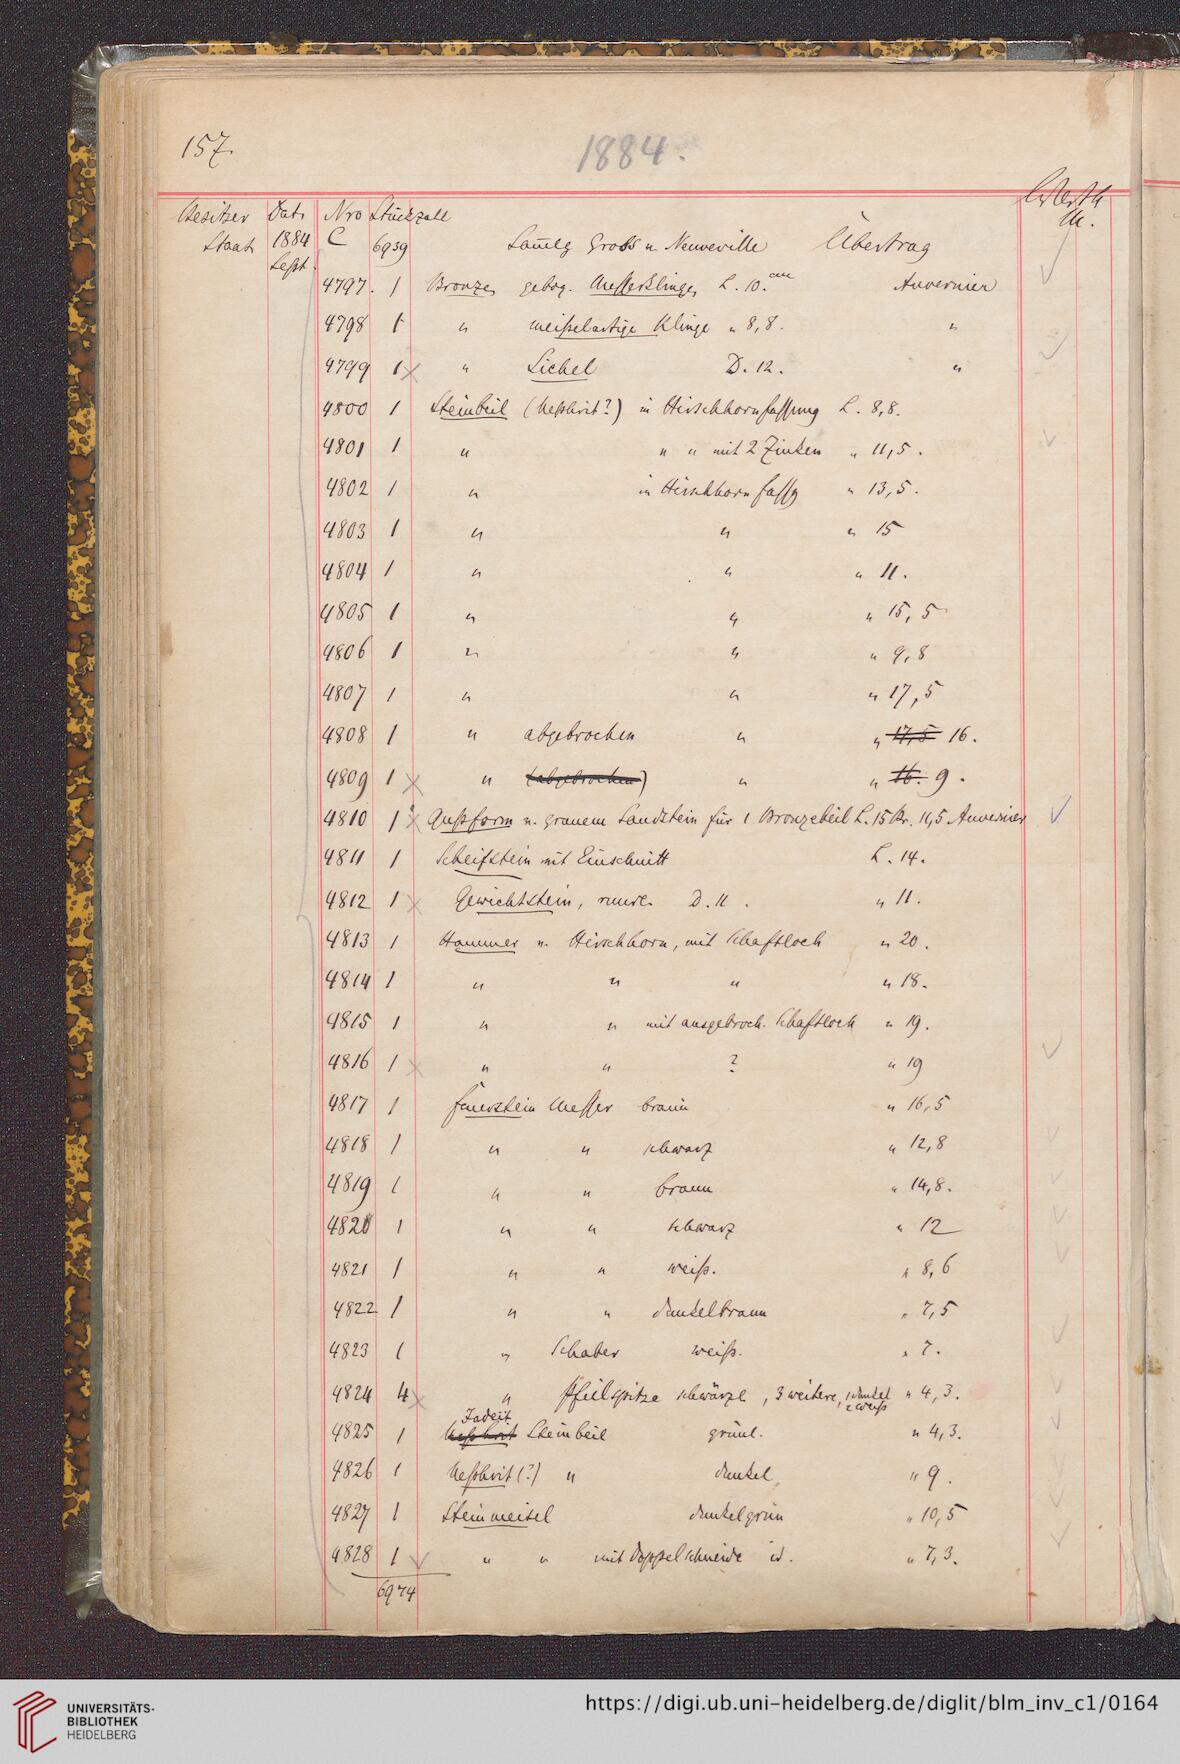 157.
1884.
Besitzer Dat. Nro Stückzahl Werth
Staat 1884 C 6939 Sam̅lg Gross v. Neuveville Übertrag M.
Sept.
4797. 1 Bronze, gebog. Messerklinge, L. 10.cm Auvernier
4798 1 " meißelartige Klinge " 8,8. "
4799 1 " Sichel D. 12. "
4800 1 Steinbeil (Nephrit?) in Hirschhornfassung L. 8,8.
4801 1 " " " mit 2 Zinken " 11,5.
4802 1 " in Hirschhornfassg " 13,5.
4803 1 " " " 15
4804 1 " " " 11.
4805 1 " " " 15,5
4806 1 " " " 9,8
4807 1 " " " 17,5
4808 1 " abgebrochen " " 17,5 16.
4809 1 " (abgebrochen) " " 16. 9.
4810 1 Gußform v. grauem Sandstein für 1 Bronzebeil L. 15 Br. 11,5 Auvernier
4811 1 Schleifstein mit Einschnitt L. 14.
4812 1 Gewichtstein, D. 11. " 11.
4813 1 Hammer v. Hirschhorn, mit Schaftloch " 20.
4814 1 " " " " 18.
4815 1 " " mit ausgebroch. Schaftloch " 19.
4816 1 " " ? " 19
4817 1 Feuerstein Messer braun " 16,5
4818 1 " " schwarz " 12,8
4819 1 " " braun " 14,8.
4820 1 " " schwarz " 12
4821 1 " " weiß. " 8,6
4822 1 " " dunkelbraun " 7,5
4823 1 " Schaber weiß. " 7.
4824 4 " Pfeilspitze schwärzl, 3 weitere, 1 dunkel " 4,3.
2 weiß
Jadeit
4825 1 Nephrit Steinbeil grünl. " 4,3.
4826 1 Nephrit (?) " dunkel " 9.
4827 1 Steinmeisel dunkelgrün " 10,5
4828 1 " " mit Doppelschneide id. " 7,3.
6974
UNIVERSITÄTS-
BIBLIOTHEK
HEIDELBERG
https://digi.ub.uni-heidelberg.de/diglit/blm_inv_c1/0164